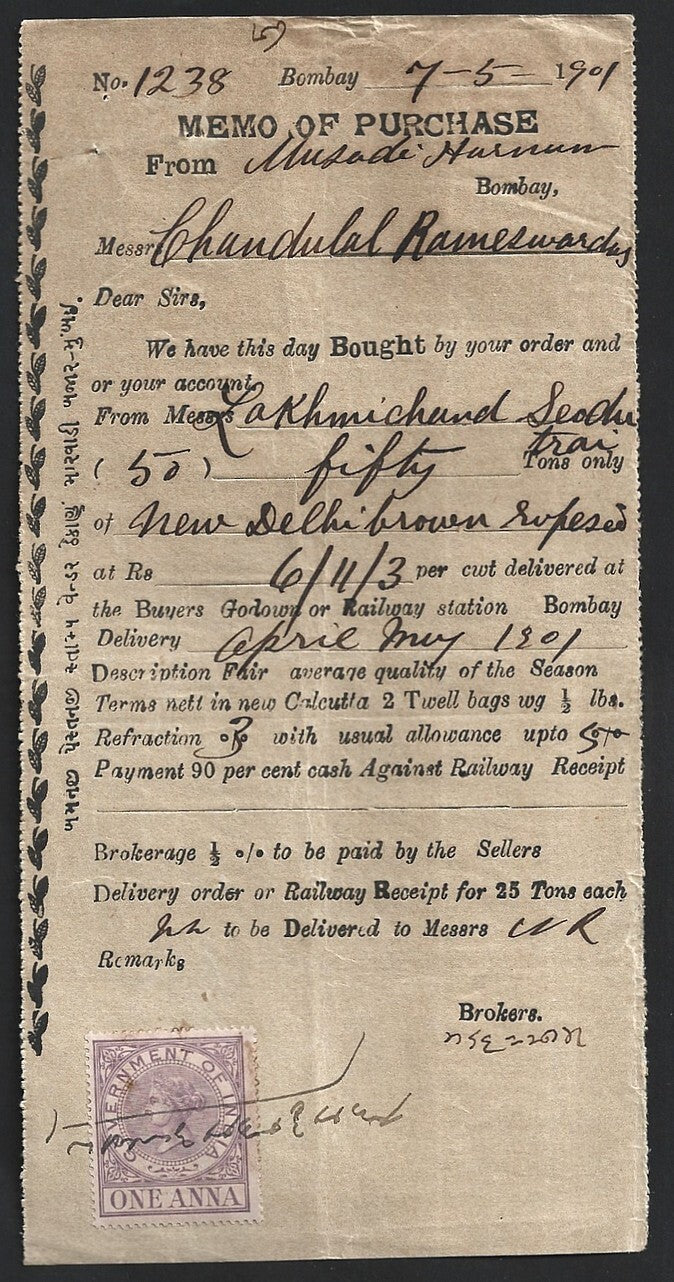 No. 1238 Bombay 7-5- 1901
MEMO OF PURCHASE
From Musadi Harnun
Bombay,
Messrs Chandulal Rameswardas
Dear Sirs,
We have this day Bought by your order and
or your account
From Messrs Lakhmichand Seodu
trai
(50) fifty Tons only
of New Delhi brown
at Rs 6/11/3 per cwt delivered at
the Buyers Godown or Railway station Bombay
Delivery April May 1901
Description Fair average quality of the Season
Terms nett in new Calcutta 2 Twell bags wg ½ lbs.
Refraction 3 % with usual allowance upto 5 %
Payment 90 per cent cash Against Railway Receipt
Brokerage ½ o/o to be paid by the Sellers
Delivery order or Railway Receipt for 25 Tons each
to be Delivered to Messrs
Remarks
Brokers.
GOVERNMENT OF INDIA
ONE ANNA